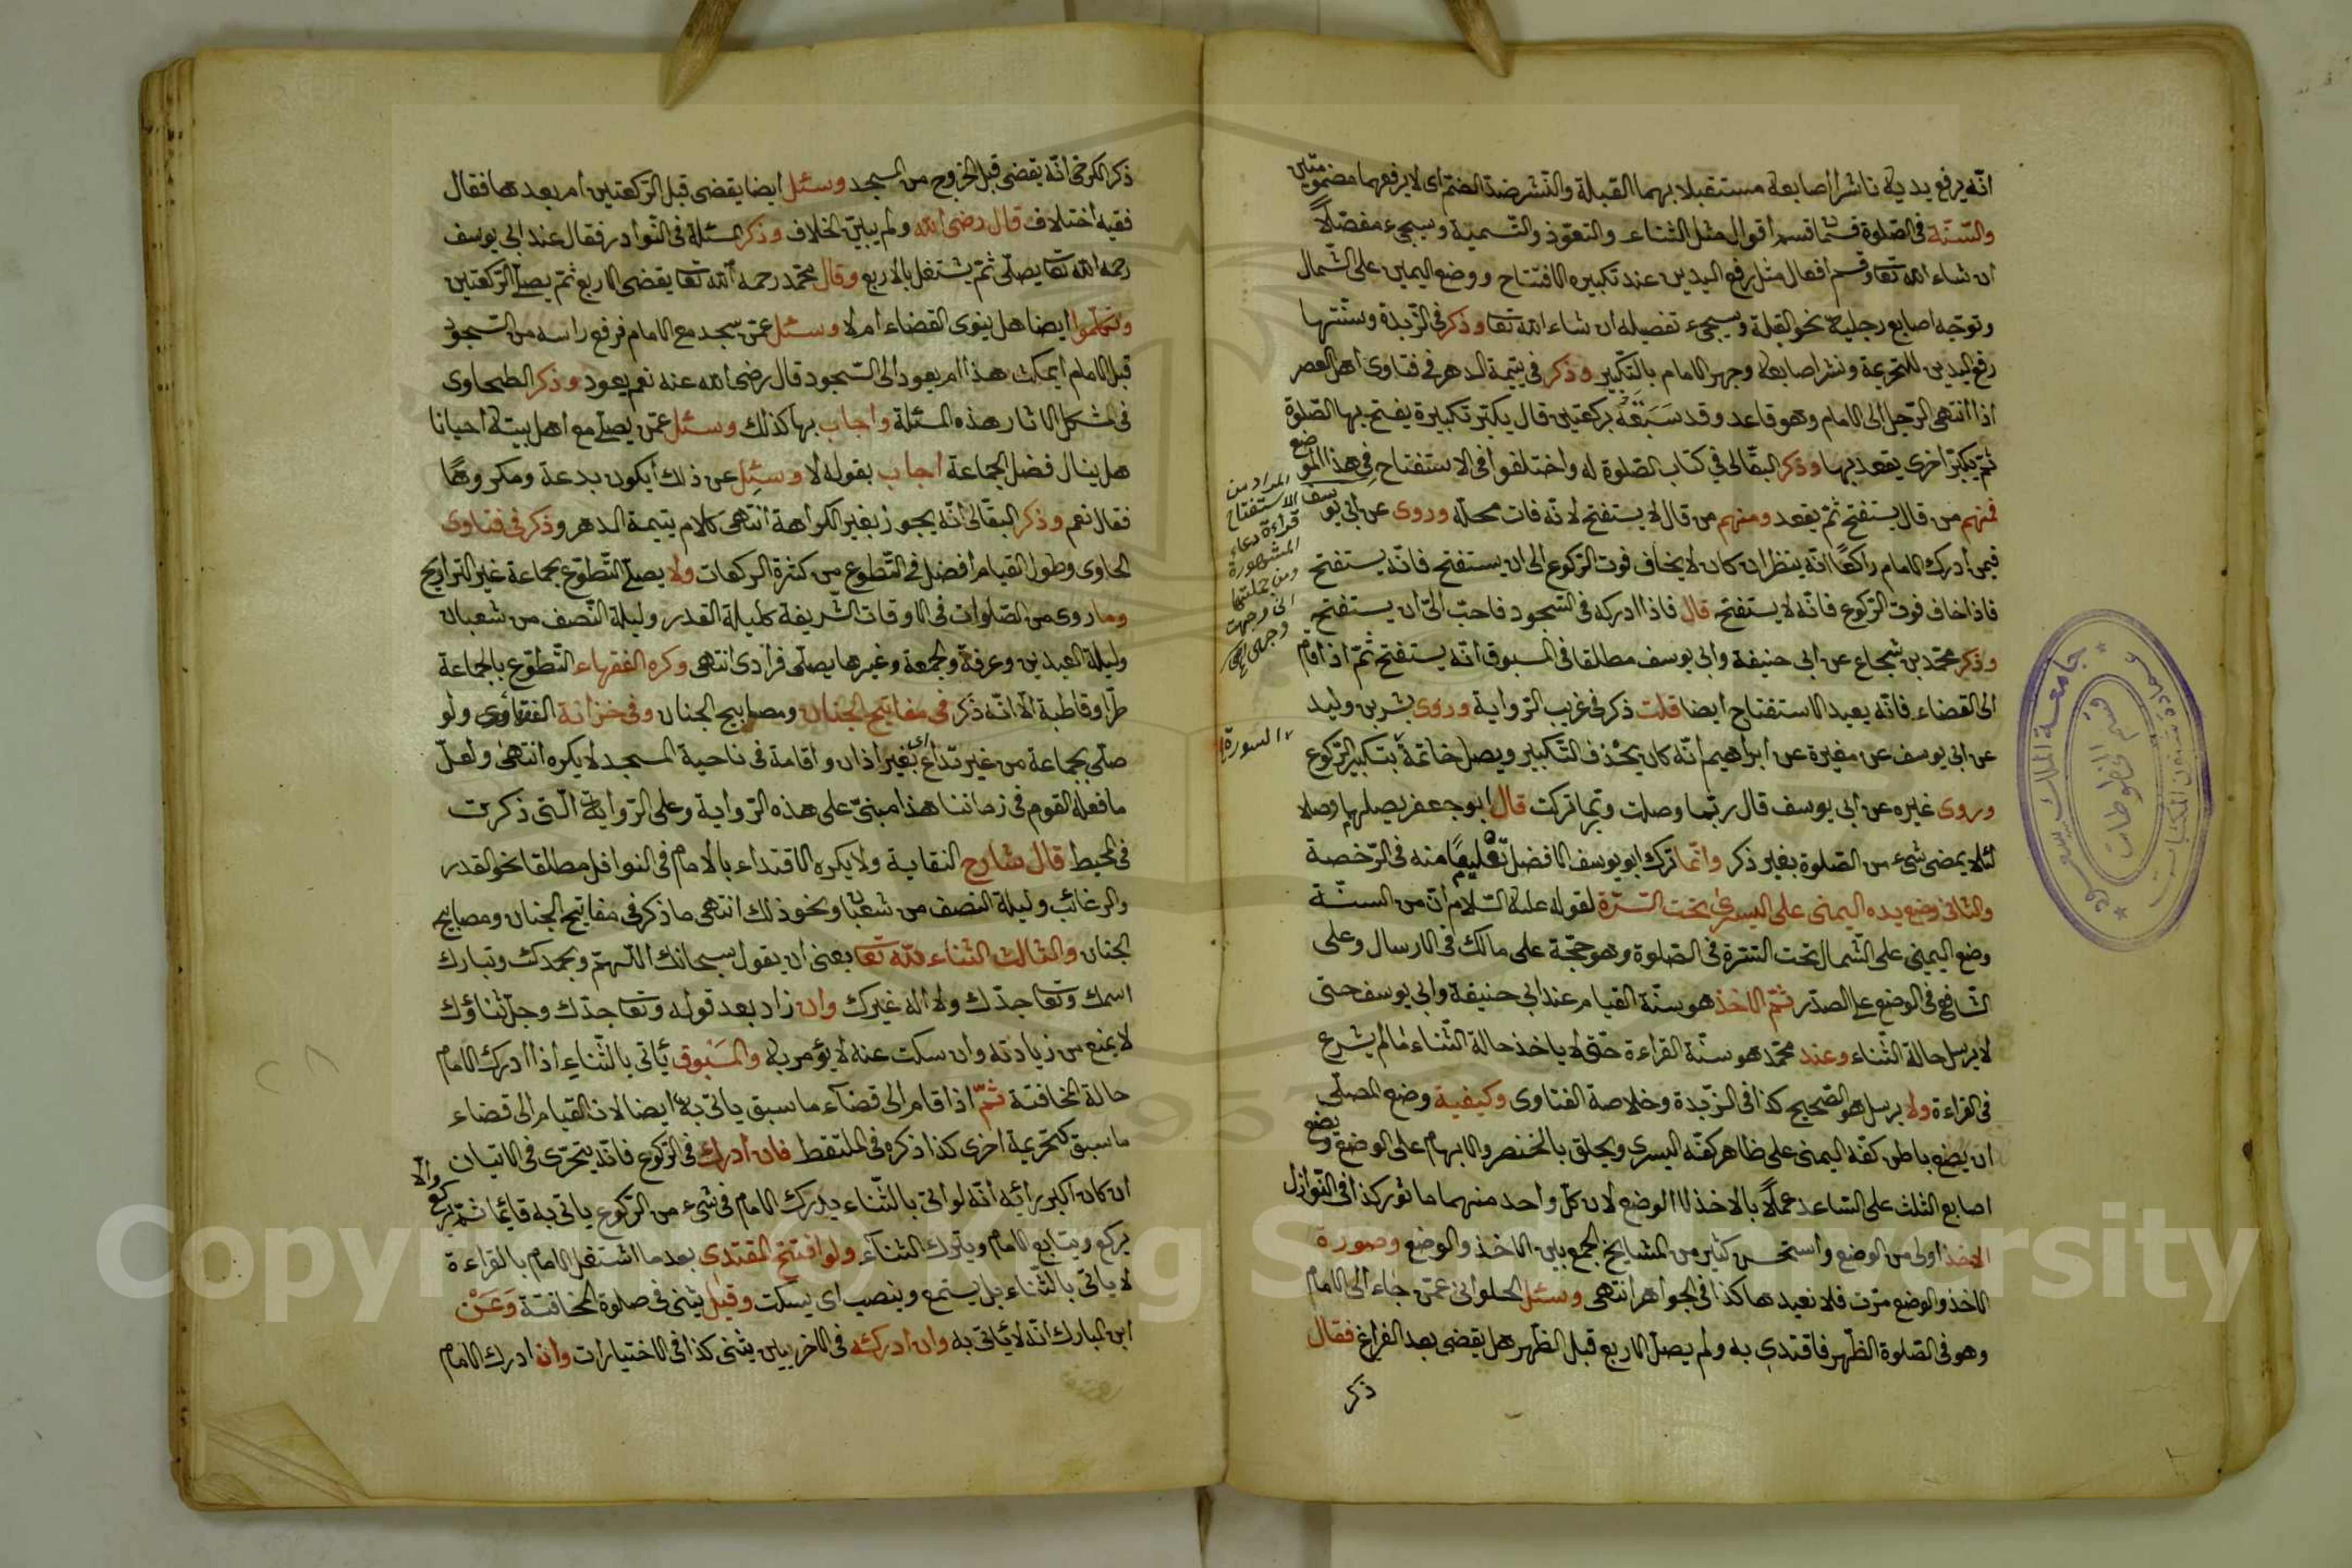 انه يرفع يديه ناشرا اصابعه مستقبلا بهما القبلة والنشر ضد الضم اى لا يرفعهما مضمومتين
والسنة فى الصلوة قسمان قسم اقوال مثل الثناء والتعوذ والتسمية وسيجىء مفصلاً
ان شاء الله تعا وقسم افعال مثل رفع اليدين عند تكبيره الافتتاح ووضع اليمين على الشمال
وتوجه اصابع رجليه نحو القبلة وسيجىء تفصيله ان شاء الله تعا وذكر فى الزبدة وسنتها
رفع اليدين للتحريمة ونشر اصابعه وجهر الامام بالتكبير وذكر فى يتيمة الدهر فى فتاوى اهل العصر
اذا انتهى الرجل الى الامام وهو قاعد وقد سَبَقَهُ بركعتين قال يكبر تكبيرة يفتح بها الصلوة
ثم يكبر اخرى يقعد بها وذكر البقالى فى كتاب الصلوة له واختلفوا فى الاستفتاح فى هذا الموضع
فمنهم من قال يستفتح ثم يقعد ومنهم من قال لا يستفتح لانه فات محله وروى عن ابى يوسف
فيمن ادرك الامام راكعًا انه ينظر ان كان لا يخاف فوت الركوع الى ان يستفتح فانه يستفتح
فاذا خاف فوت الركوع فانه لا يستفتح قال فاذا ادركه فى السجود فاحب الىّ ان يستفتح
وذكر محمد بن شجاع عن ابى حنيفة وابى يوسف مطلقا فى المسبوق انه يستفتح ثم اذا قام
الى القضاء فانه يعيد الاستفتاح ايضا قلت ذكر فى غريب الرواية وروى بشر بن وليد
عن ابى يوسف عن مغيرة عن ابراهيم انه كان يحذف التكبير ويصل خاتمة بتكبير الركوع
وروى غيره عن ابى يوسف قال ربما وصلت وربما تركت قال ابو جعفر يصلهما وصلا
لئلا يمضى شىء من الصلوة بغير ذكر وانما ترك ابو يوسف الافضل تعليمًا منه فى الرخصة
والثانى وضع يده اليمنى على اليسرى تحت السرة لقوله عليه السلام ان من السنة
وضع اليمنى على الشمال تحت السرة فى الصلوة وهو حجة على مالك فى الارسال وعلى
الشافعى فى الوضع على الصدر ثم الاخذ هو سنة القيام عند ابى حنيفة وابى يوسف حتى
لا يرسل حالة الثناء وعند محمد هو سنة القراءة حتى لا ياخذ حالة الثناء ما لم يشرع
فى القراءة ولا يرسل هو الصحيح كذا فى الزبدة وخلاصة الفتاوى وكيفية وضع المصلى
ان يضع باطن كفه اليمنى على ظاهر كفه اليسرى ويحلق بالخنصر والابهام على الوضع ويضع
اصابع الثلث على الساعد عملاً بالاخذ لا الوضع لان كل واحد منهما ماثور كذا فى النوازل
الاخذ اولى من الوضع واستحسن كثير من المشايخ الجمع بين الاخذ والوضع وصورة
الاخذ والوضع مرت فلا نعيدها كذا فى الجواهر انتهى وسئل الحلوانى عمن جاء الى الامام
وهو فى الصلوة الظهر فاقتدى به ولم يصل الاربع قبل الظهر هل يقضى بعد الفراغ فقال
ذكر
المراد من
الاستفتاح
قراءة دعاء
المشهورة
ومن جملتها
انى وجهت
وجهى
السورة
ذكر الكرخى انه يقضى قبل الخروج من المسجد وسئل ايضا يقضى قبل الركعتين ام بعدهما فقال
فقيه اختلاف قال رضى الله ولم يبين الخلاف وذكر المسئلة فى النوادر فقال عند ابى يوسف
رحمه الله تعا يصلى ثم يشتغل بالاربع وقال محمد رحمه الله تعا يقضى الاربع ثم يصلى الركعتين
وتكلموا ايضا هل ينوى القضاء ام لا وسئل عمن سجد مع الامام فرفع راسه من السجود
قبل الامام ايمكث هذا ام يعود الى السجود قال رضى الله عنه نعم يعود وذكر الطحاوى
فى مشكل الاثار هذه المسئلة واجاب بها كذلك وسئل عمن يصلى مع اهل بيته احيانا
هل ينال فضل الجماعة اجاب بقوله لا وسئل عن ذلك ايكون بدعة ومكروها
فقال نعم وذكر البقالى انه يجوز بغير الكراهة انتهى كلام يتيمة الدهر وذكر فى فتاوى
الحاوى وطول القيام افضل فى التطوع من كثرة الركعات ولا يصلى التطوع بجماعة غير التراويح
وما روى من الصلوات فى الاوقات الشريفة كليلة القدر وليلة النصف من شعبان
وليلة العيدين وعرفة والجمعة وغيرها يصلى فرادى انتهى وكره الفقهاء التطوع بالجماعة
طرا وقاطبة الا انه ذكر فى مفاتيح الجنان ومصابيح الجنان وفى خزانة الفتاوى ولو
صلى بجماعة من غير تداع اى بغير اذان واقامة فى ناحية المسجد لا يكره انتهى ولعل
ما فعله القوم فى زماننا هذا مبنى على هذه الرواية وعلى الرواية التى ذكرت
فى المحيط قال شارح النقاية ولا يكره الاقتداء بالامام فى النوافل مطلقا نحو القدر
والرغائب وليلة النصف من شعبان ونحو ذلك انتهى ما ذكر فى مفاتيح الجنان ومصابيح
الجنان والثالث الثناء لله تعا يعنى ان يقول سبحانك اللهم وبحمدك وتبارك
اسمك وتعا جدك ولا اله غيرك وان زاد بعد قوله وتعا جدك وجل ثناؤك
لا يمنع من زيادته وان سكت عنه لا يؤمر به والمسبوق ياتى بالثناء اذا ادرك الامام
حالة المخافتة ثم اذا قام الى قضاء ما سبق ياتى به ايضا لان القيام الى قضاء
ما سبق كتحريمة اخرى كذا ذكره فى الملتقط فان ادرك فى الركوع فانه يتحرى فى الاتيان
ان كان اكبر رائه انه لو اتى بالثناء يدرك الامام فى شىء من الركوع ياتى به قائما ثم يركع والا
يركع ويتابع الامام ويترك الثناء ولو افتتح المقتدى بعد ما اشتغل الامام بالقراءة
لا ياتى بالثناء بل يستمع وينصب اى يسكت وقيل يثنى فى صلوة المخافتة وَعَنْ
ابن المبارك انه لا ياتى به وان ادركه فى الاخريين يثنى كذا فى الاختيارات وان ادرك الامام
جامعة الملك سعود
عمادة شئون المكتبات
قسم المخطوطات
Copyright © King Saud University